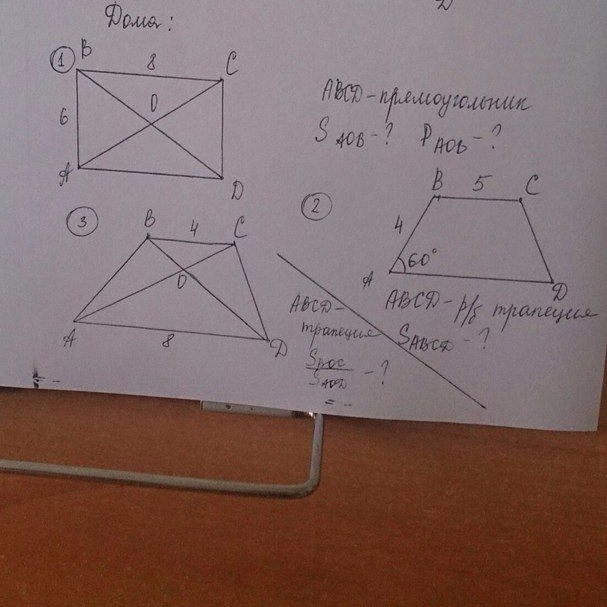 Дома:
D
① B 8 C
6 O
A D
ABCD - прямоугольник
S AOB - ? P AOB - ?
② B 5 C
4
A 60° D
ABCD - р/б трапеция
S ABCD - ?
③ B 4 C
O
A 8 D
ABCD -
трапеция
S BOC
S AOD - ?